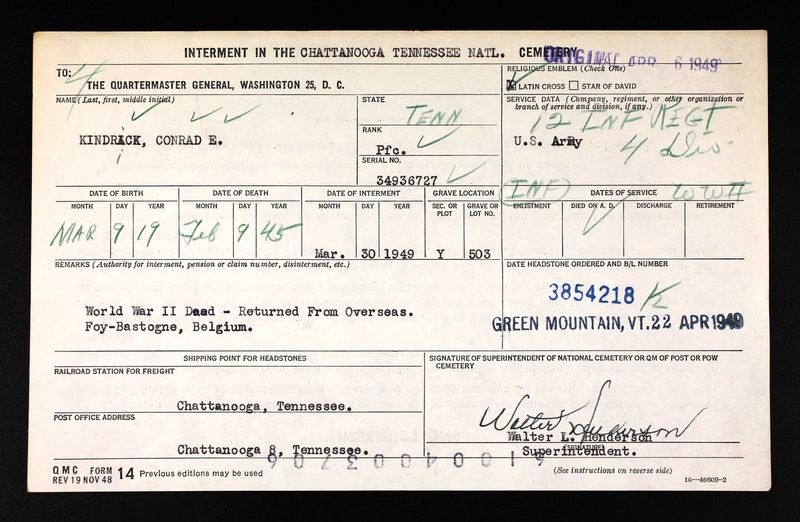 INTERMENT IN THE CHATTANOOGA TENNESSEE NATL. CEMETERY
ORIGINAL APR 6 1949
TO:
4
THE QUARTERMASTER GENERAL, WASHINGTON 25, D. C.
RELIGIOUS EMBLEM (Check One)
☒ LATIN CROSS ☐ STAR OF DAVID
NAME (Last, first, middle initial)
KINDRICK, CONRAD E.
i
STATE
TENN
RANK
Pfc.
SERIAL NO.
34936727
SERVICE DATA (Company, regiment, or other organization or
branch of service and division, if any.)
12 INF REGT
U.S. Army
4 Div.
(INF)
WWII
DATE OF BIRTH
MONTH DAY YEAR
MAR 9 19
DATE OF DEATH
MONTH DAY YEAR
Feb 9 45
DATE OF INTERMENT
MONTH DAY YEAR
Mar. 30 1949
GRAVE LOCATION
SEC. OR PLOT
GRAVE OR LOT NO.
Y 503
DATES OF SERVICE
ENLISTMENT DIED ON A. D. DISCHARGE RETIREMENT
REMARKS (Authority for interment, pension or claim number, disinterment, etc.)
World War II Dead - Returned From Overseas.
Foy-Bastogne, Belgium.
DATE HEADSTONE ORDERED AND B/L NUMBER
3854218 K
GREEN MOUNTAIN, VT. 22 APR 1949
SHIPPING POINT FOR HEADSTONES
RAILROAD STATION FOR FREIGHT
Chattanooga, Tennessee.
POST OFFICE ADDRESS
Chattanooga 8, Tennessee.
SIGNATURE OF SUPERINTENDENT OF NATIONAL CEMETERY OR QM OF POST OR POW
CEMETERY
Walter L. Henderson
Walter L. Henderson
(SIGNATURE)
Superintendent.
QMC FORM 14 Previous editions may be used
REV 19 NOV 48
(See instructions on reverse side)
16—46609-2